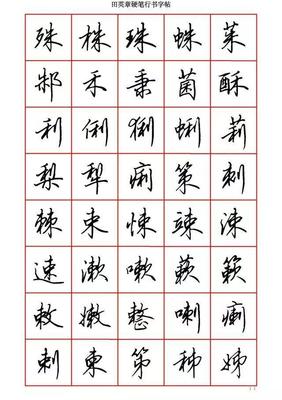 田英章硬笔行书字帖
殊株珠蛛茱
郝禾秉菌酥
利俐猁蜊莉
梨犁痢策刺
棘束悚竦涑
速漱嗽蔌簌
敕嫩整喇瘌
剌柬第秭姊